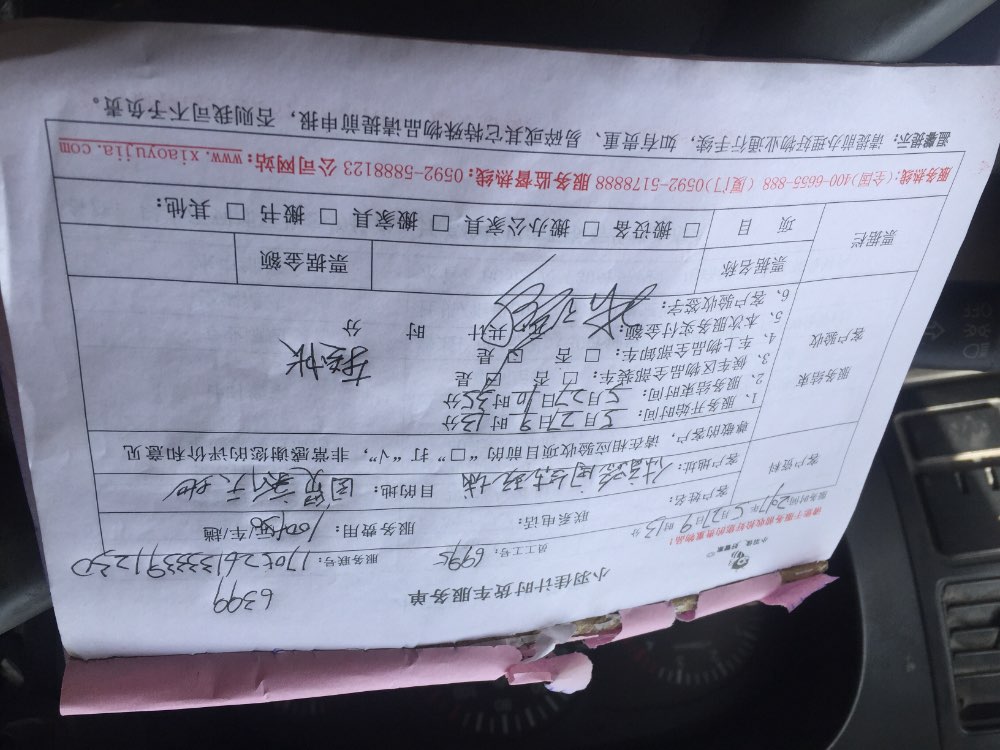 6399
小羽佳计时货车服务单
小羽佳，好管家
员工工号：6995 服务联号：1705261333391230
请您于服务前收拾好您的贵重物品！
服务时间：2017年5月27日9时13分 服务费用：100/30元/车/趟
客户资料
客户姓名： 联系电话：
客户地址： 目的地：
尊敬的客户，请在相应验收项目前的“□”打“√”，非常感谢您的评价和意见
服务结束
客户验收
1、服务开始时间：5月27日9时13分
2、服务结束时间：5月27日10时35分
3、候车区物品全部装车：□ 否 ☑ 是
4、车上物品全部卸车：□ 否 ☑ 是
5、本次服务实付金额： 共计 时 分
6、客户验收签字：
挂帐
票据栏
票据名称 票据金额
项 目 □ 搬设备 □ 搬办公家具 □ 搬家具 □ 搬书 □ 其他：
服务热线：(全国)400-6655-888 (厦门)0592-5178888 服务监督热线：0592-5888123 公司网站：www.xiaoyujia.com
温馨提示：请提前办理好物业通行手续，如有贵重、易碎或其它特殊物品请提前申报，否则我司不予负责。